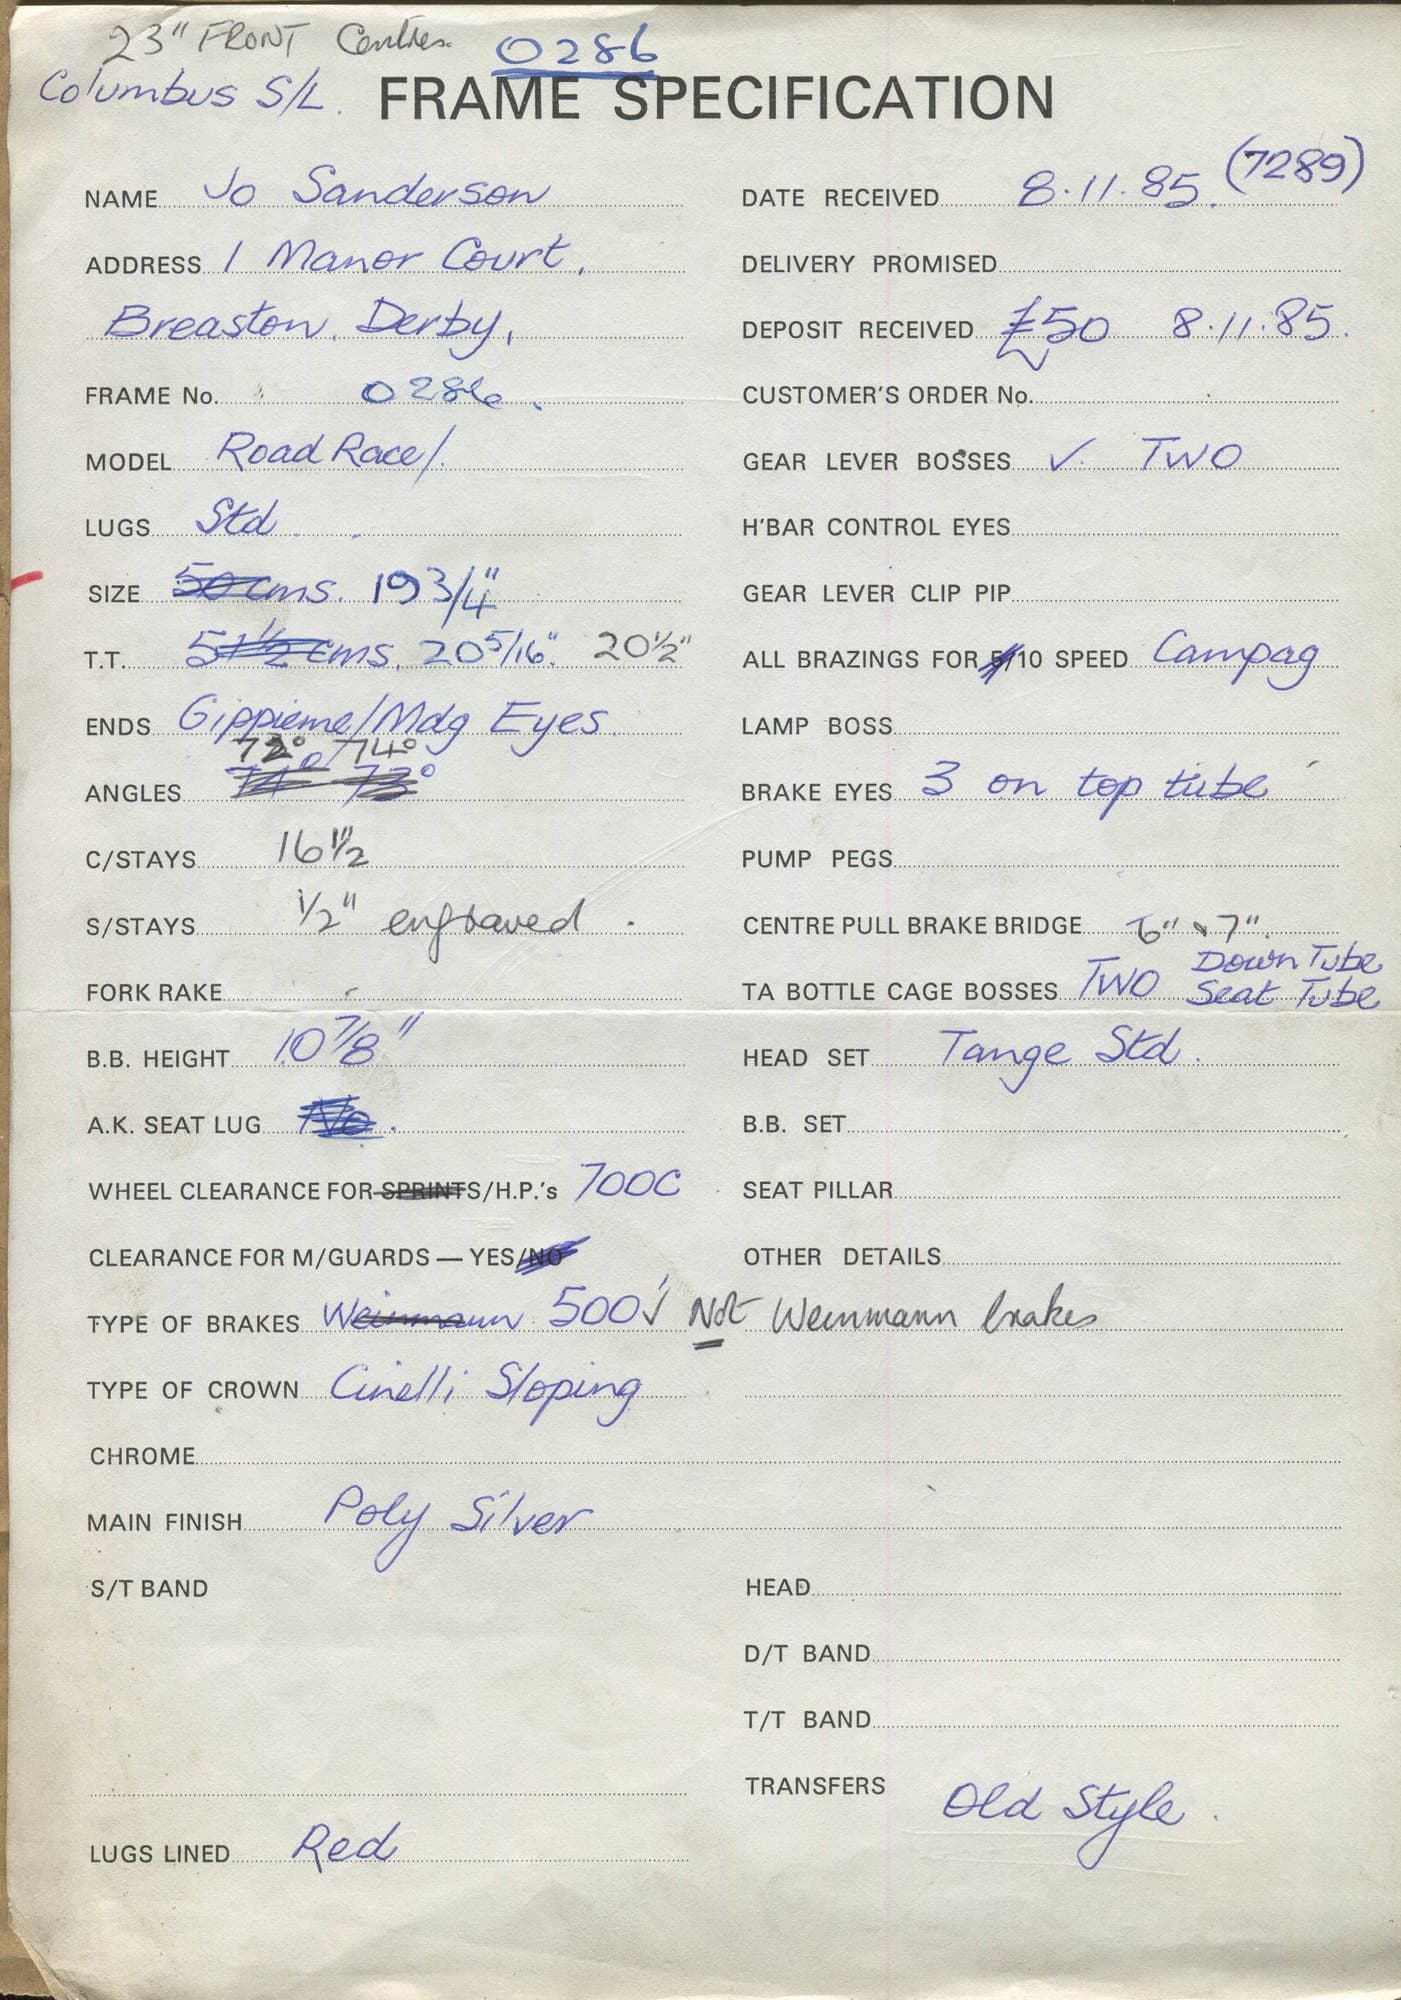 23" FRONT Centres 0286
Columbus S/L. FRAME SPECIFICATION
NAME Jo Sanderson
ADDRESS 1 Manor Court,
Breaston. Derby,
FRAME No. 0286.
MODEL Road Race/.
LUGS Std
SIZE 50 cms. 19 3/4"
T.T. 51 1/2 cms. 20 5/16". 20 1/2"
ENDS Gippieme/Mdg Eyes.
72° 74°
ANGLES 74° 73°
C/STAYS 16 1/2"
S/STAYS 1/2" engraved.
FORK RAKE
B.B. HEIGHT 10 7/8"
A.K. SEAT LUG No.
WHEEL CLEARANCE FOR SPRINTS/H.P.'s 700C
CLEARANCE FOR M/GUARDS — YES/NO
TYPE OF BRAKES Weinmann 500 ✓ Not Weinmann brakes
TYPE OF CROWN Cinelli Sloping
CHROME
MAIN FINISH Poly Silver
S/T BAND
LUGS LINED Red
DATE RECEIVED 8.11.85. (7289)
DELIVERY PROMISED
DEPOSIT RECEIVED £50 8.11.85.
CUSTOMER'S ORDER No.
GEAR LEVER BOSSES ✓. TWO
H'BAR CONTROL EYES
GEAR LEVER CLIP PIP
ALL BRAZINGS FOR 5/10 SPEED Campag
LAMP BOSS
BRAKE EYES 3 on top tube
PUMP PEGS
CENTRE PULL BRAKE BRIDGE 6" 7".
TA BOTTLE CAGE BOSSES TWO Down Tube
Seat Tube
HEAD SET Tange Std.
B.B. SET
SEAT PILLAR
OTHER DETAILS
HEAD
D/T BAND
T/T BAND
TRANSFERS Old Style.